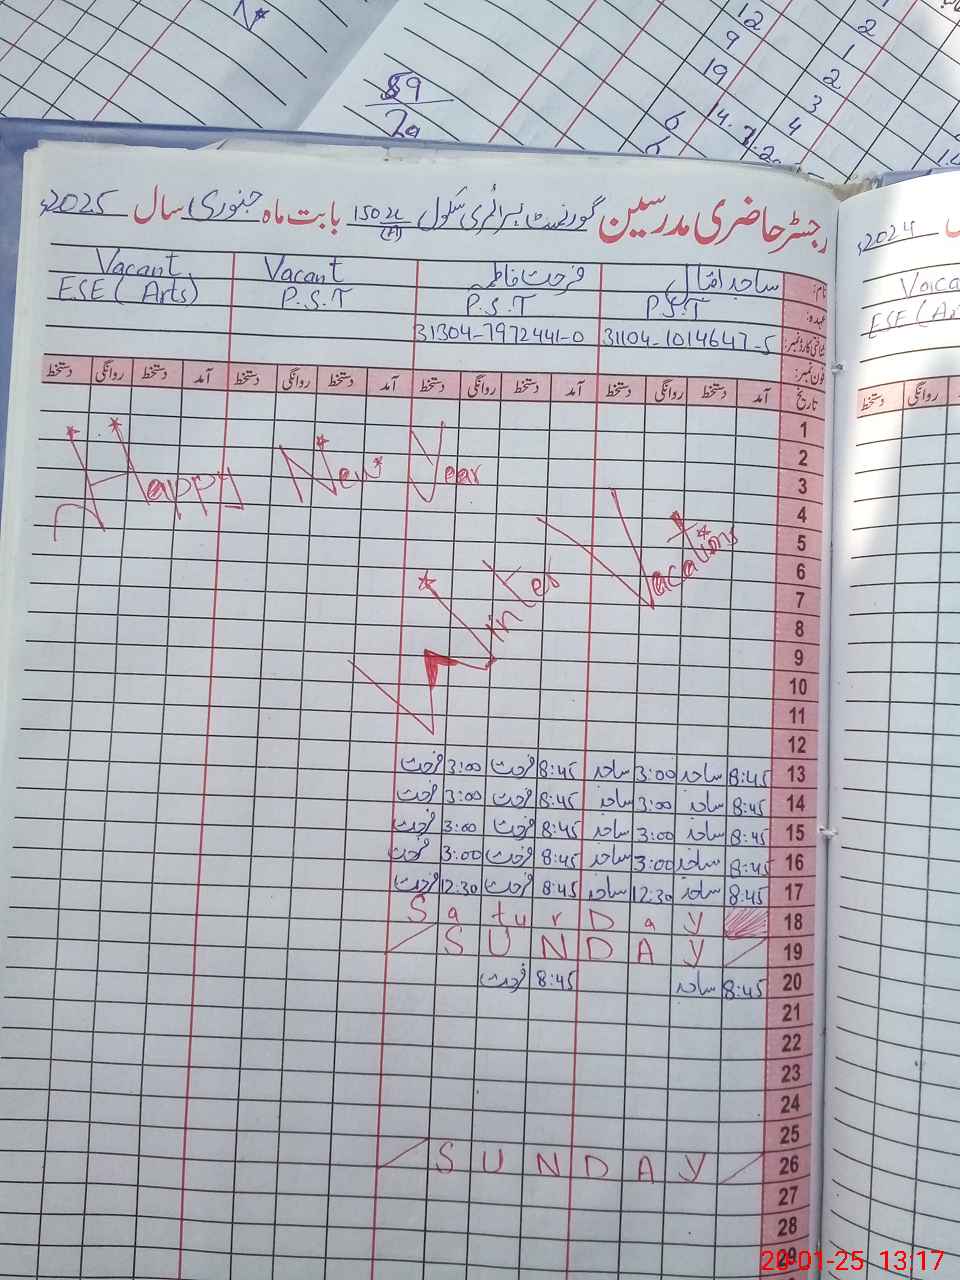 12
2
9
1
19
2
3
4
6
14.
59
20
رجسٹر حاضری مدرسین گورنمنٹ پرائمری سکول 150 بابت ماہ جنوری سال 2025ء
2024ء
نام: ساجد اقبال فرحت فاطمہ Vacant Vacant
عہدہ: P.S.T P.S.T P.S.T ESE (Arts)
شناختی کارڈ نمبر: 31104-1014647-5 31304-7972441-0
فون نمبر:
تاریخ آمد دستخط روانگی دستخط آمد دستخط روانگی دستخط آمد دستخط روانگی دستخط آمد دستخط روانگی دستخط
روانگی دستخط
1
2
3
Happy New Year
4
5
6
7
Winter Vacations
8
9
10
11
12
13 8:45 ساجد 3:00 ساجد 8:45 فرحت 3:00 فرحت
14 8:45 ساجد 3:00 ساجد 8:45 فرحت 3:00 فرحت
15 8:45 ساجد 3:00 ساجد 8:45 فرحت 3:00 فرحت
16 8:45 ساجد 3:00 ساجد 8:45 فرحت 3:00 فرحت
17 8:45 ساجد 12:30 ساجد 8:45 فرحت 12:30 فرحت
SaturDay 18
SUNDAY 19
20 8:45 ساجد 8:45 فرحت
21
22
23
24
25
SUNDAY 26
27
28
29
20-01-25 13:17